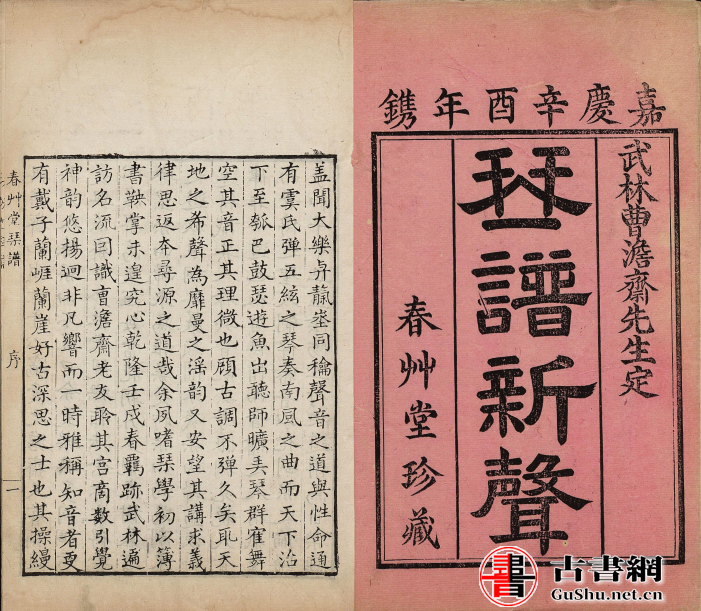 嘉慶辛酉年鐫
武林曹澹齋先生定
琴譜新聲
春艸堂珍藏
蓋聞大樂與
同穐聲音之道與性命通
有虞氏彈五絃之琴奏南風之曲而天下治
下至瓠巴鼓瑟遊魚出聽師曠奏琴群寉舞
空其音正其理微也顧古調不彈久矣耴天
地之希聲為靡曼之滛韵又安望其講求義
律思返夲尋源之道哉余夙嗜琹學初以簿
書鞅掌未遑究心乾隆壬戌春羈跡武林遍
訪名流囙識曺澹齋老友聆其宫商數引覺
神韵悠揚迥非凡響而一時雅稱知音者更
有戴子蘭崕蘭崖好古深思之士也其操縵
春艸堂琹譜
序
一
書
古書網
GuShu.net.cn